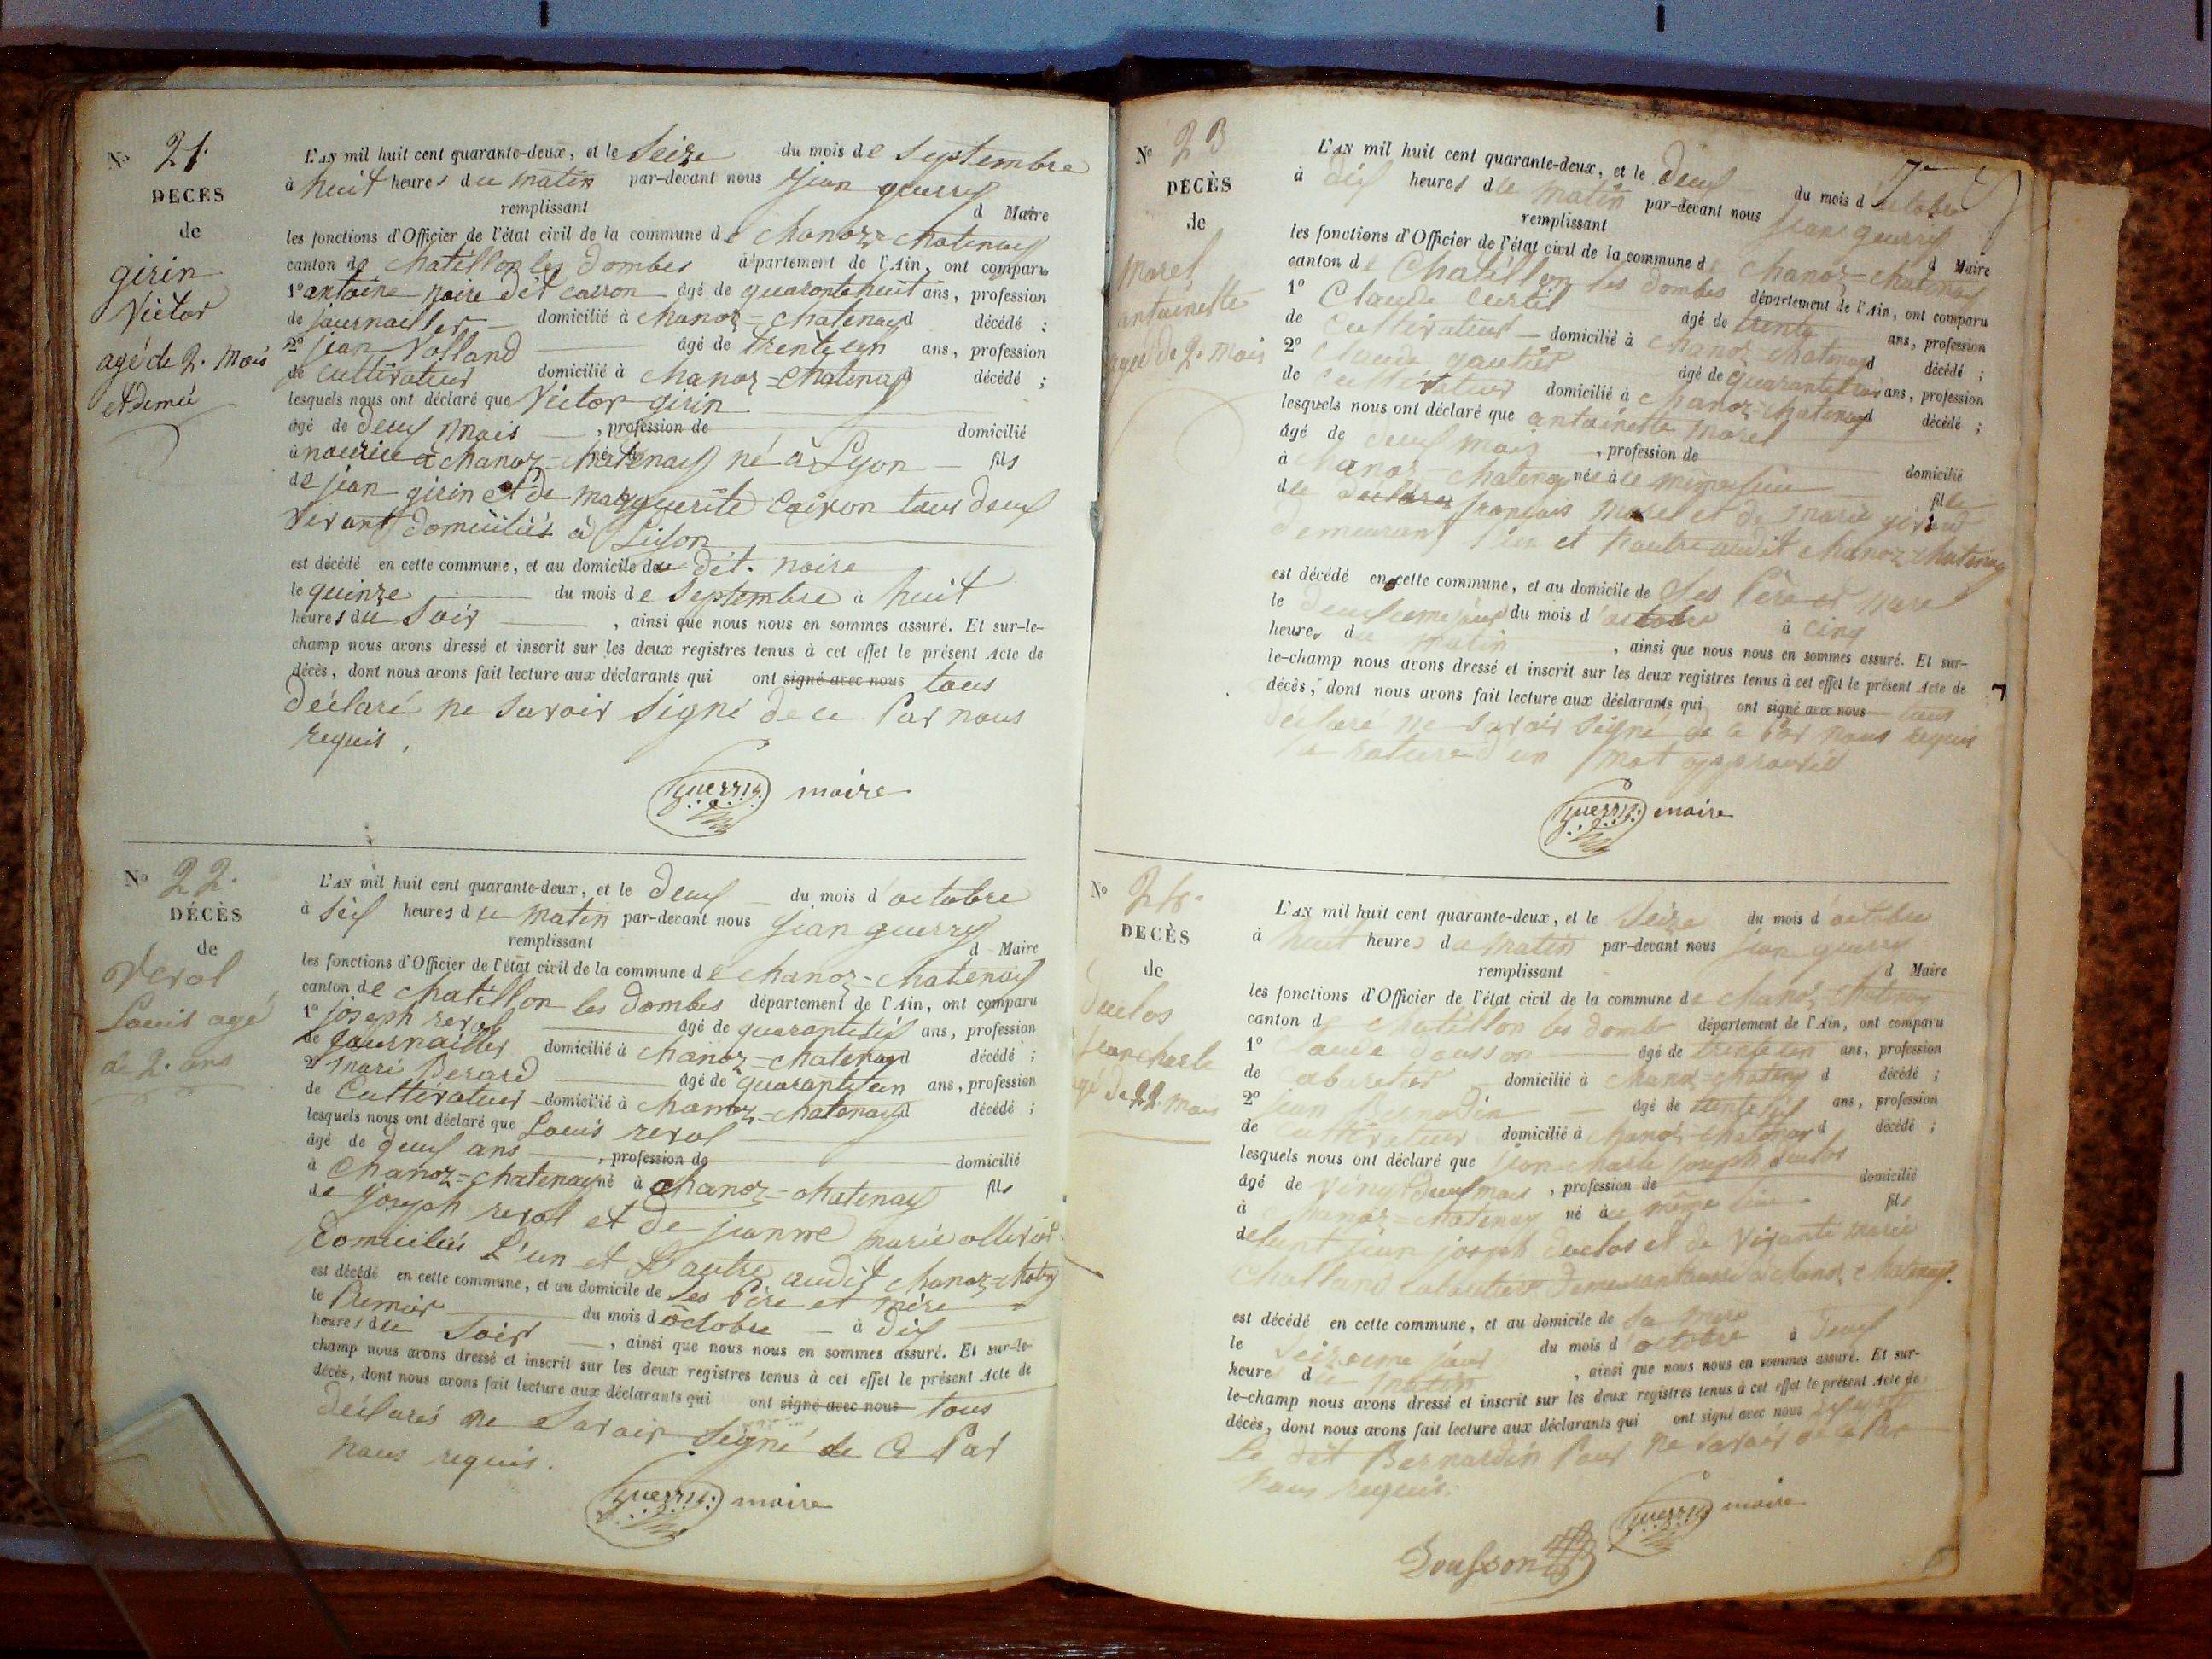 N° 21.
DECÈS
de
girin
Victor
agé de 2. mois
et demie
L'AN mil huit cent quarante-deux, et le Seize du mois de Septembre
à huit heures du matin par-devant nous jean guerry
remplissant d Maire
les fonctions d'Officier de l'état civil de la commune de chanoz=chatenay
canton de chatillon les Dombes département de l'Ain, ont comparu
1° antoine noire dit coiron âgé de quarante huit ans, profession
de journailler domicilié à chanoz=chatenay d décédé ;
2° jean Volland âgé de trente un ans, profession
de cultivateur domicilié à chanoz=chatenay d décédé ;
lesquels nous ont déclaré que Victor girin
âgé de deux mois , profession de domicilié
à nourice à chanoz=chatenay né à Lyon fils
de jean girin et de marguerite Coiron tous deux
vivant domiciliés à Lyon
est décédé en cette commune, et au domicile du dit. noire
le quinze du mois de Septembre à huit
heures du Soir , ainsi que nous nous en sommes assuré. Et sur-le-
champ nous avons dressé et inscrit sur les deux registres tenus à cet effet le présent Acte de
décès, dont nous avons fait lecture aux déclarants qui ont signé avec nous tous
déclaré ne Savoir Signé de ce Par nous
requis.
guerry maire
N° 22.
DÉCÈS
de
Louis agé
de 2. ans
L'AN mil huit cent quarante-deux, et le deux du mois d'octobre
à Six heures du matin par-devant nous jean guerry
remplissant d Maire
les fonctions d'Officier de l'état civil de la commune de chanoz=chatenay
canton de chatillon les Dombes département de l'Ain, ont comparu
1° joseph reval âgé de quarante six ans, profession
de journailler domicilié à chanoz=chatenay d décédé ;
2° mari Berard âgé de quarante un ans, profession
de Cultivateur domicilié à chanoz=chatenay d décédé ;
lesquels nous ont déclaré que Louis reval
âgé de deux ans , profession de domicilié
à Chanoz=chatenay né à chanoz=chatenay fils
de joseph reval et de jeanne marie
Domiciliés L'un et L'autre audit chanoz=chatny
est décédé en cette commune, et au domicile de Ses Père et mère
le Premier du mois d'octobre à dix
heures du Soir , ainsi que nous nous en sommes assuré. Et sur-le-
champ nous avons dressé et inscrit sur les deux registres tenus à cet effet le présent Acte de
décès, dont nous avons fait lecture aux déclarants qui ont signé avec nous tous
déclarés ne Savoir Signé de Ce Par
nous requis.
guerry maire
N° 23
DÉCÈS
de
morel
antoinette
agée de 2. mois
L'AN mil huit cent quarante-deux, et le deux du mois d'octobre
à dix heures du matin par-devant nous jean guerry
remplissant d Maire
les fonctions d'Officier de l'état civil de la commune de chanoz=chatenay
canton de Chatillon les Dombes département de l'Ain, ont comparu
1° Claude Curtil âgé de trente ans, profession
de cultivateur domicilié à chanoz chatenay d décédé ;
2° Claude gautier âgé de quarante trois ans, profession
de cultivateur domicilié à chanoz=chatenay d décédé ;
lesquels nous ont déclaré que antoinette morel
âgé de deux mois , profession de domicilié
à chanoz=chatenay née à ce même lieu fille
de françois morel et de marie
demeurant l'un et l'autre audit chanoz=chatenay
est décédé en cette commune, et au domicile de Ses Père et mère
le deuxieme jour du mois d'octobre à cinq
heures du matin , ainsi que nous nous en sommes assuré. Et sur-
le-champ nous avons dressé et inscrit sur les deux registres tenus à cet effet le présent Acte de
décès, dont nous avons fait lecture aux déclarants qui ont signé avec nous tous
déclaré ne Savoir Signé de ce Par nous requis
la rature d'un mot approuvée
guerry maire
N° 24.
DECÈS
de
Duclos
jean charle
agé de 22. mois
L'AN mil huit cent quarante-deux, et le Seize du mois d'octobre
à huit heures du matin par-devant nous jean guerry
remplissant d Maire
les fonctions d'Officier de l'état civil de la commune de chanoz=chatenay
canton d chatillon les Domb département de l'Ain, ont comparu
1° Claude Dousson âgé de trente un ans, profession
de Cabaretier domicilié à chanoz=chatenay d décédé ;
2° jean Bernardin âgé de trente six ans, profession
de cultivateur domicilié à chanoz=chatenay d décédé ;
lesquels nous ont déclaré que jean charle joseph duclos
âgé de Vingt deux mois , profession de domicilié
à chanoz=chatenay né à ce même lieu fils
de jean joseph duclos et de marie
Cabaretier demeurant à chanoz chatenay.
est décédé en cette commune, et au domicile de Sa mère
le Seizieme jour du mois d'octobre à Deux
heures du matin , ainsi que nous nous en sommes assuré. Et sur-
le-champ nous avons dressé et inscrit sur les deux registres tenus à cet effet le présent Acte de
décès, dont nous avons fait lecture aux déclarants qui ont signé avec nous
Le dit Bernardin Pour ne Savoir de ce Par
nous requis.
guerry maire
Dousson